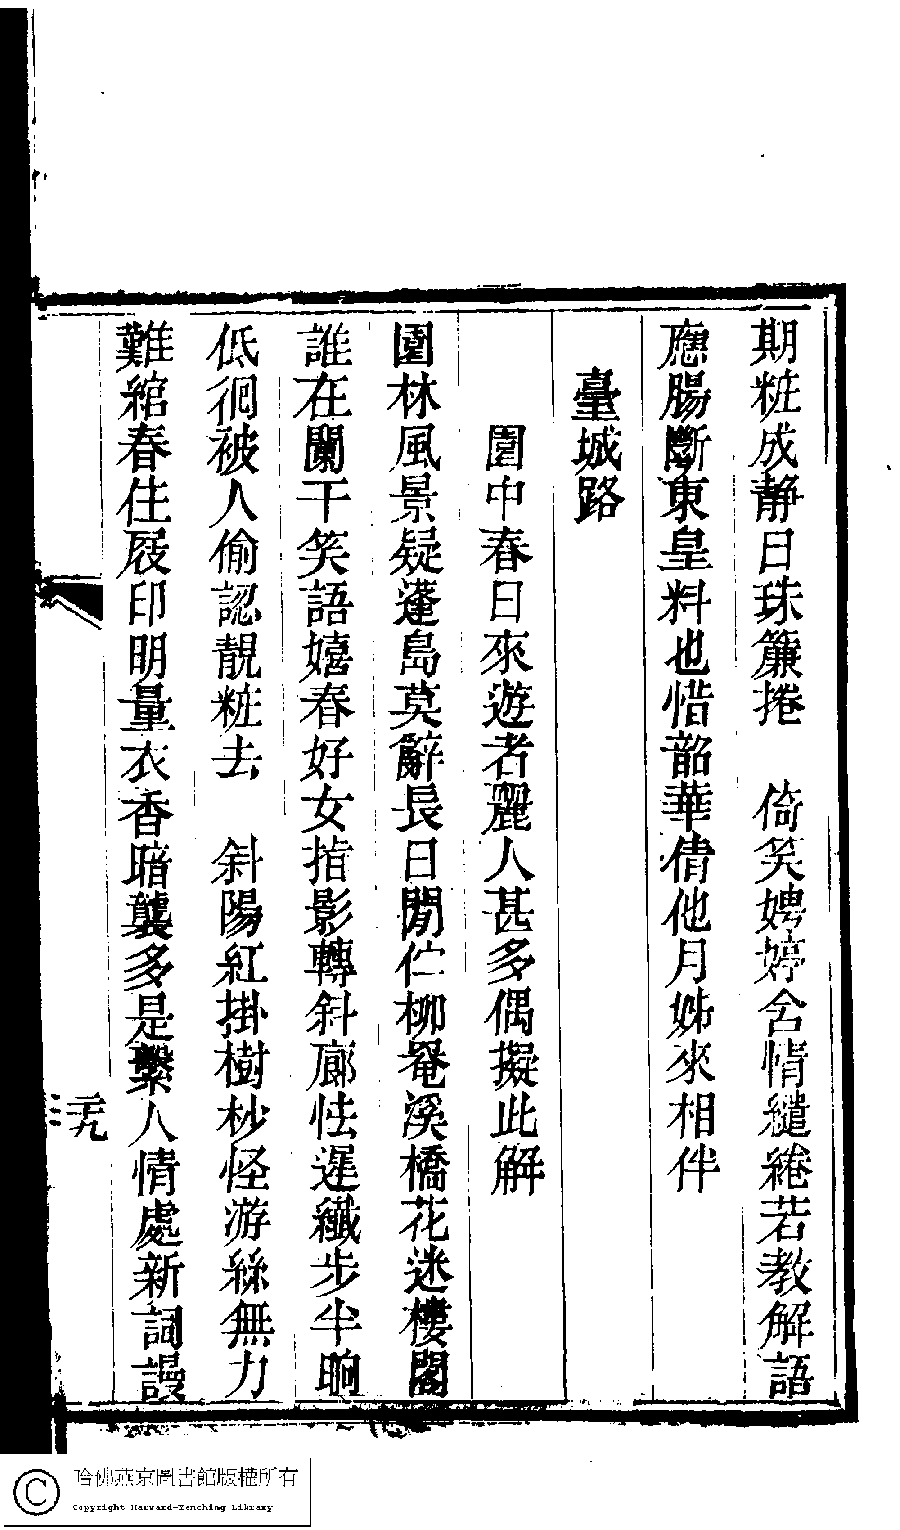 期粧成靜日珠簾捲　倚笑娉婷含情繾綣若教解語
應腸斷東皇料也惜韶華倩他月姊來相伴
臺城路
園中春日來遊者麗人甚多偶擬此解
園林風景疑蓬島莫辭長日閒伫柳罨溪橋花迷樓閣
誰在闌干笑語嬉春好女指影轉斜廊怯遲纖步半晌
低徊被人偷認靚粧去　斜陽紅掛樹杪怪游絲無力
難綰春住屐印明量衣香暗襲多是繫人情處新詞謾
哈佛燕京圖書館版權所有
Copyright Harvard-Yenching Library